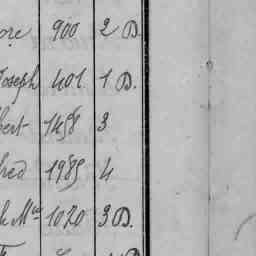 ore 900 2 D.
Joseph 401 1 D.
bert 1458 3
red 1985 4
k Mce 1020 3 D.